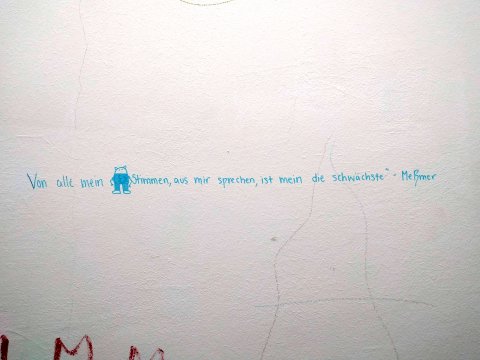 Von alle mein Stimmen, aus mir sprechen, ist mein die schwächste" - Meßmer
M M